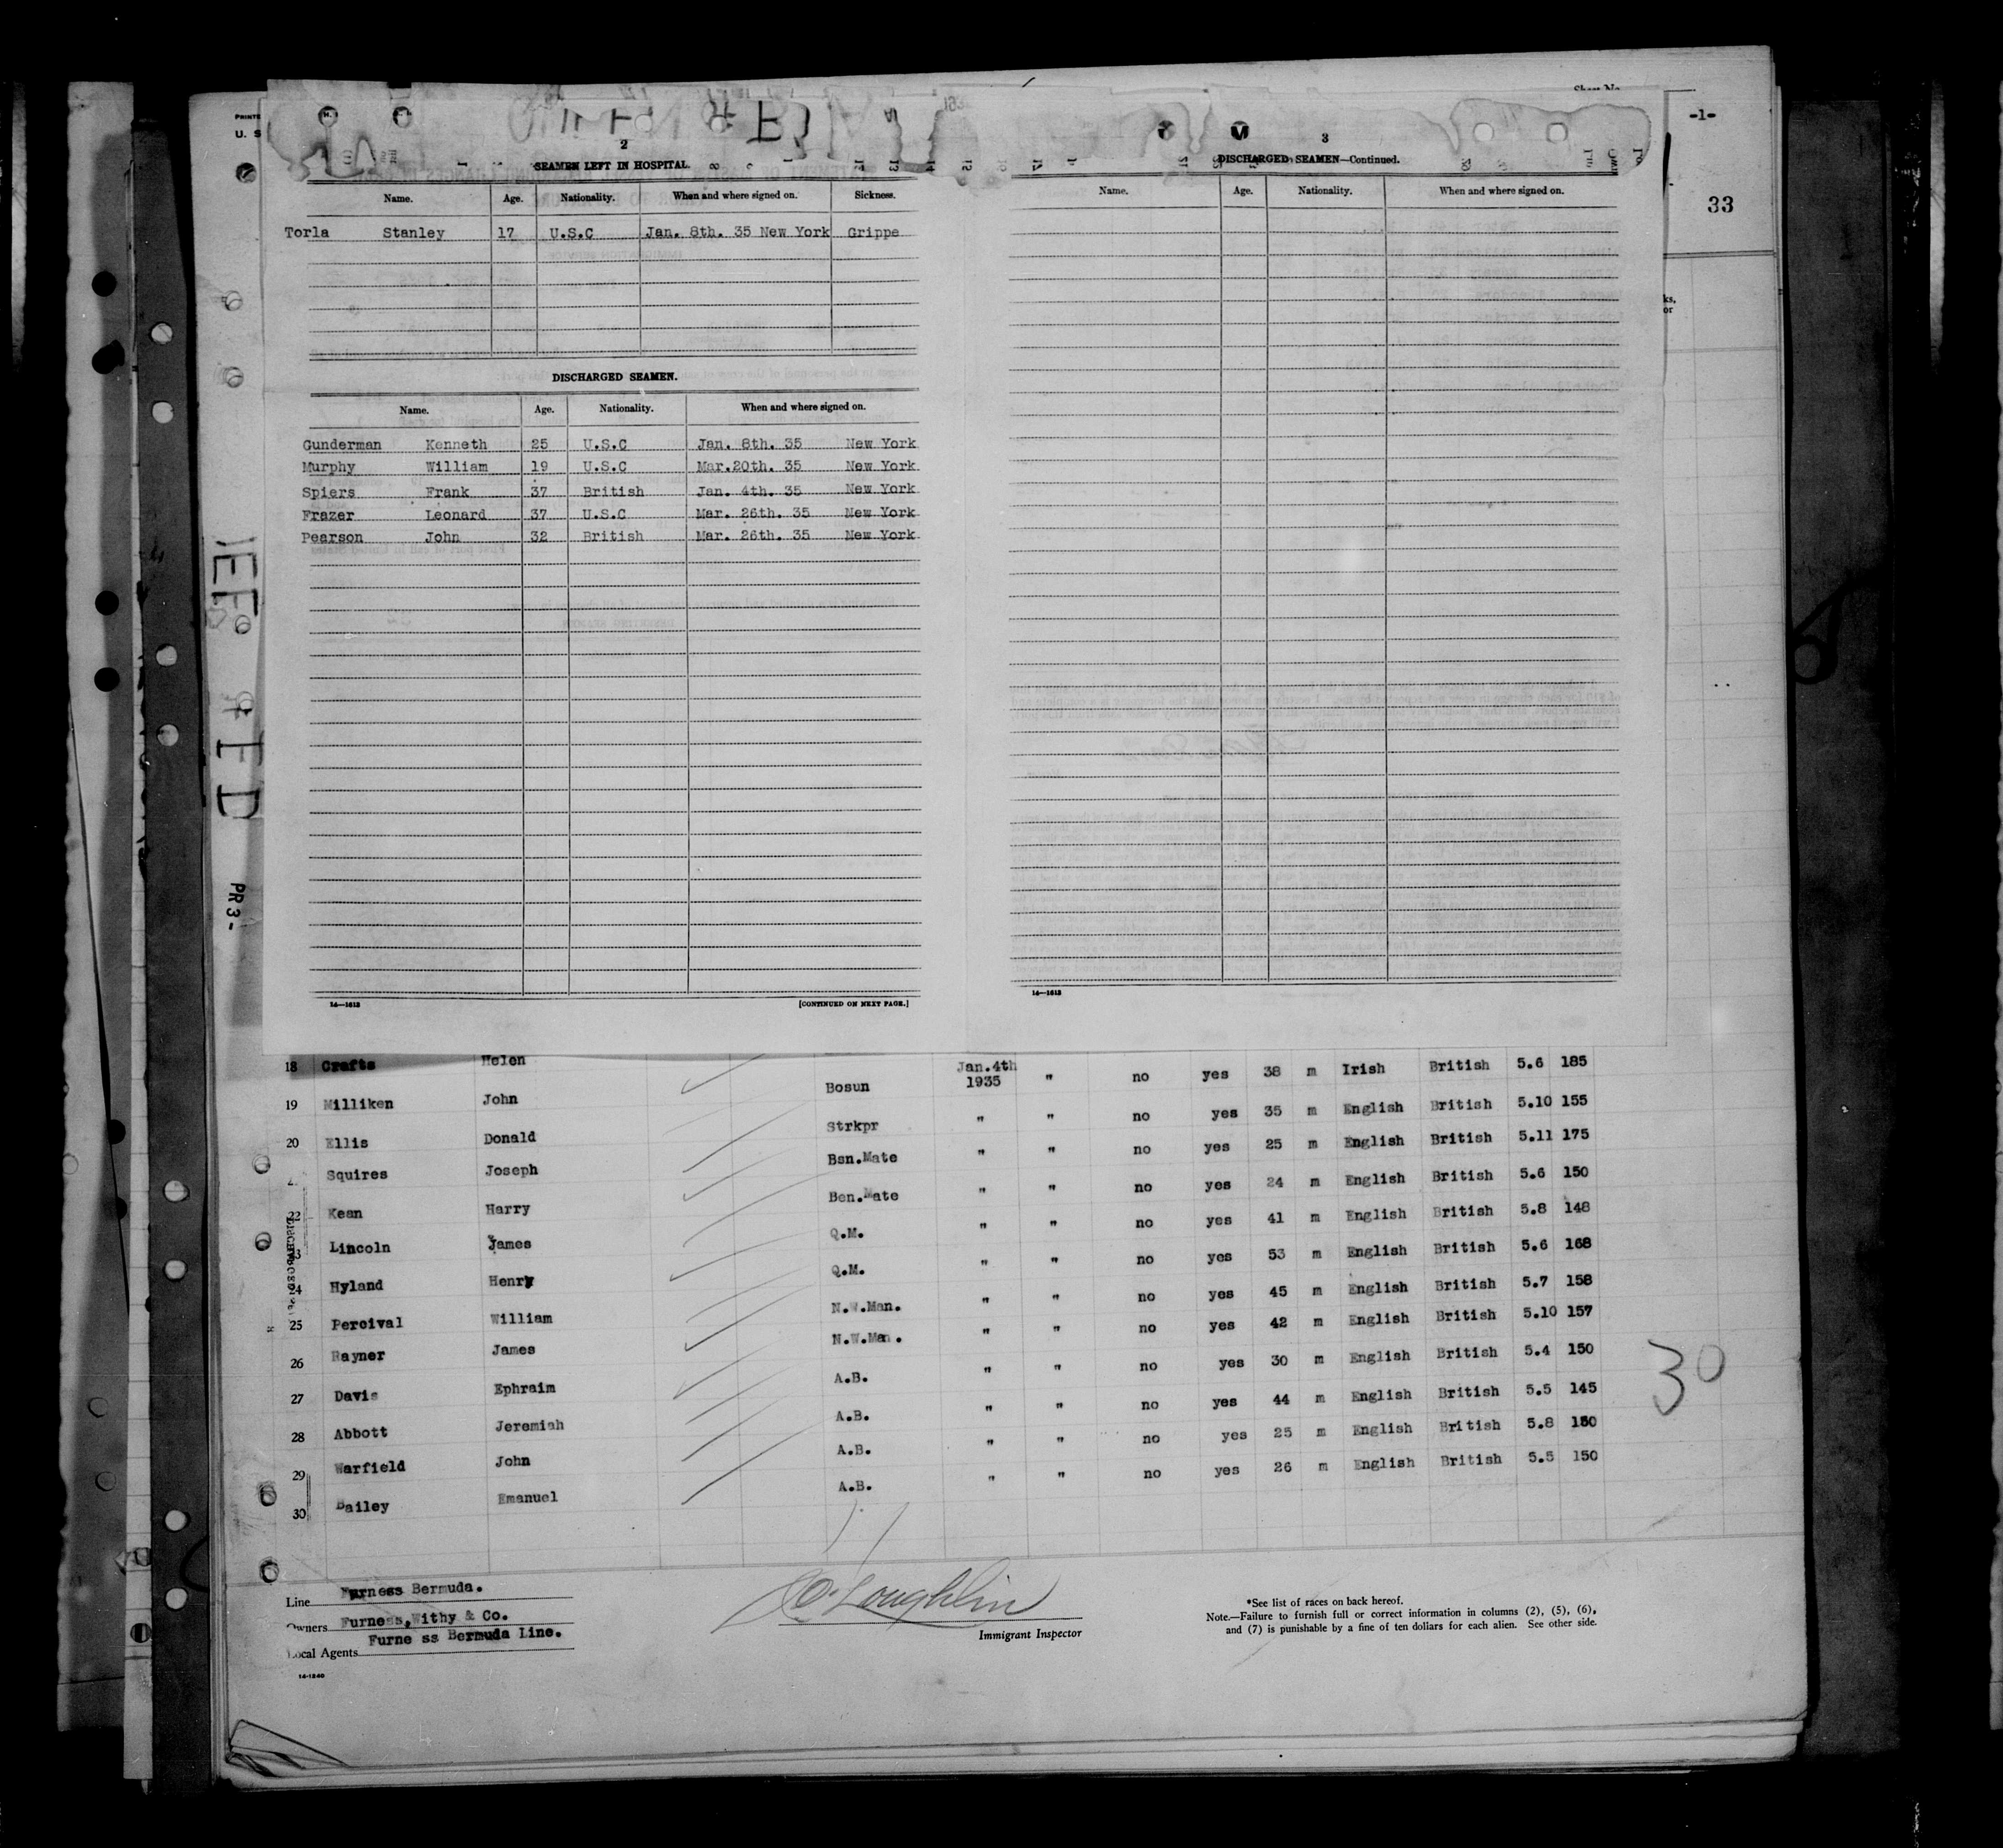 PRINTE
U. S
-1-
33
2
SEAMEN LEFT IN HOSPITAL.
Name. Age. Nationality. When and where signed on. Sickness.
Torla Stanley 17 U.S.C Jan. 8th. 35 New York Grippe
DISCHARGED SEAMEN.
Name. Age. Nationality. When and where signed on.
Gunderman Kenneth 25 U.S.C Jan. 8th. 35 New York
Murphy William 19 U.S.C Mar.20th. 35 New York
Spiers Frank 37 British Jan. 4th. 35 New York
Frazer Leonard 37 U.S.C Mar. 26th. 35 New York
Pearson John 32 British Mar. 26th. 35 New York
14—1613
[CONTINUED ON NEXT PAGE.]
3
DISCHARGED SEAMEN—Continued.
Name. Age. Nationality. When and where signed on.
14—1613
ks,
or
PR 3-
18 Crafts Helen
19 Milliken John Bosun Jan.4th 1935 " no yes 38 m Irish British 5.6 185
20 Ellis Donald Strkpr " " no yes 35 m English British 5.10 155
Squires Joseph Bsn.Mate " " no yes 25 m English British 5.11 175
22 Kean Harry Bsn.Mate " " no yes 24 m English British 5.6 150
23 Lincoln James Q.M. " " no yes 41 m English British 5.8 148
24 Hyland Henry Q.M. " " no yes 53 m English British 5.6 168
25 Percival William N.W.Man. " " no yes 45 m English British 5.7 158
26 Rayner James N.W.Man. " " no yes 42 m English British 5.10 157
27 Davis Ephraim A.B. " " no yes 30 m English British 5.4 150
28 Abbott Jeremiah A.B. " " no yes 44 m English British 5.5 145
29 Warfield John A.B. " " no yes 25 m English British 5.8 150
30 Bailey Emanuel A.B. " " no yes 26 m English British 5.5 150
30
Line Furness Bermuda.
Owners Furness,Withy & Co.
Local Agents Furne ss Bermuda Line.
14-1240
O'Loughlin
Immigrant Inspector
*See list of races on back hereof.
Note.—Failure to furnish full or correct information in columns (2), (5), (6),
and (7) is punishable by a fine of ten dollars for each alien. See other side.